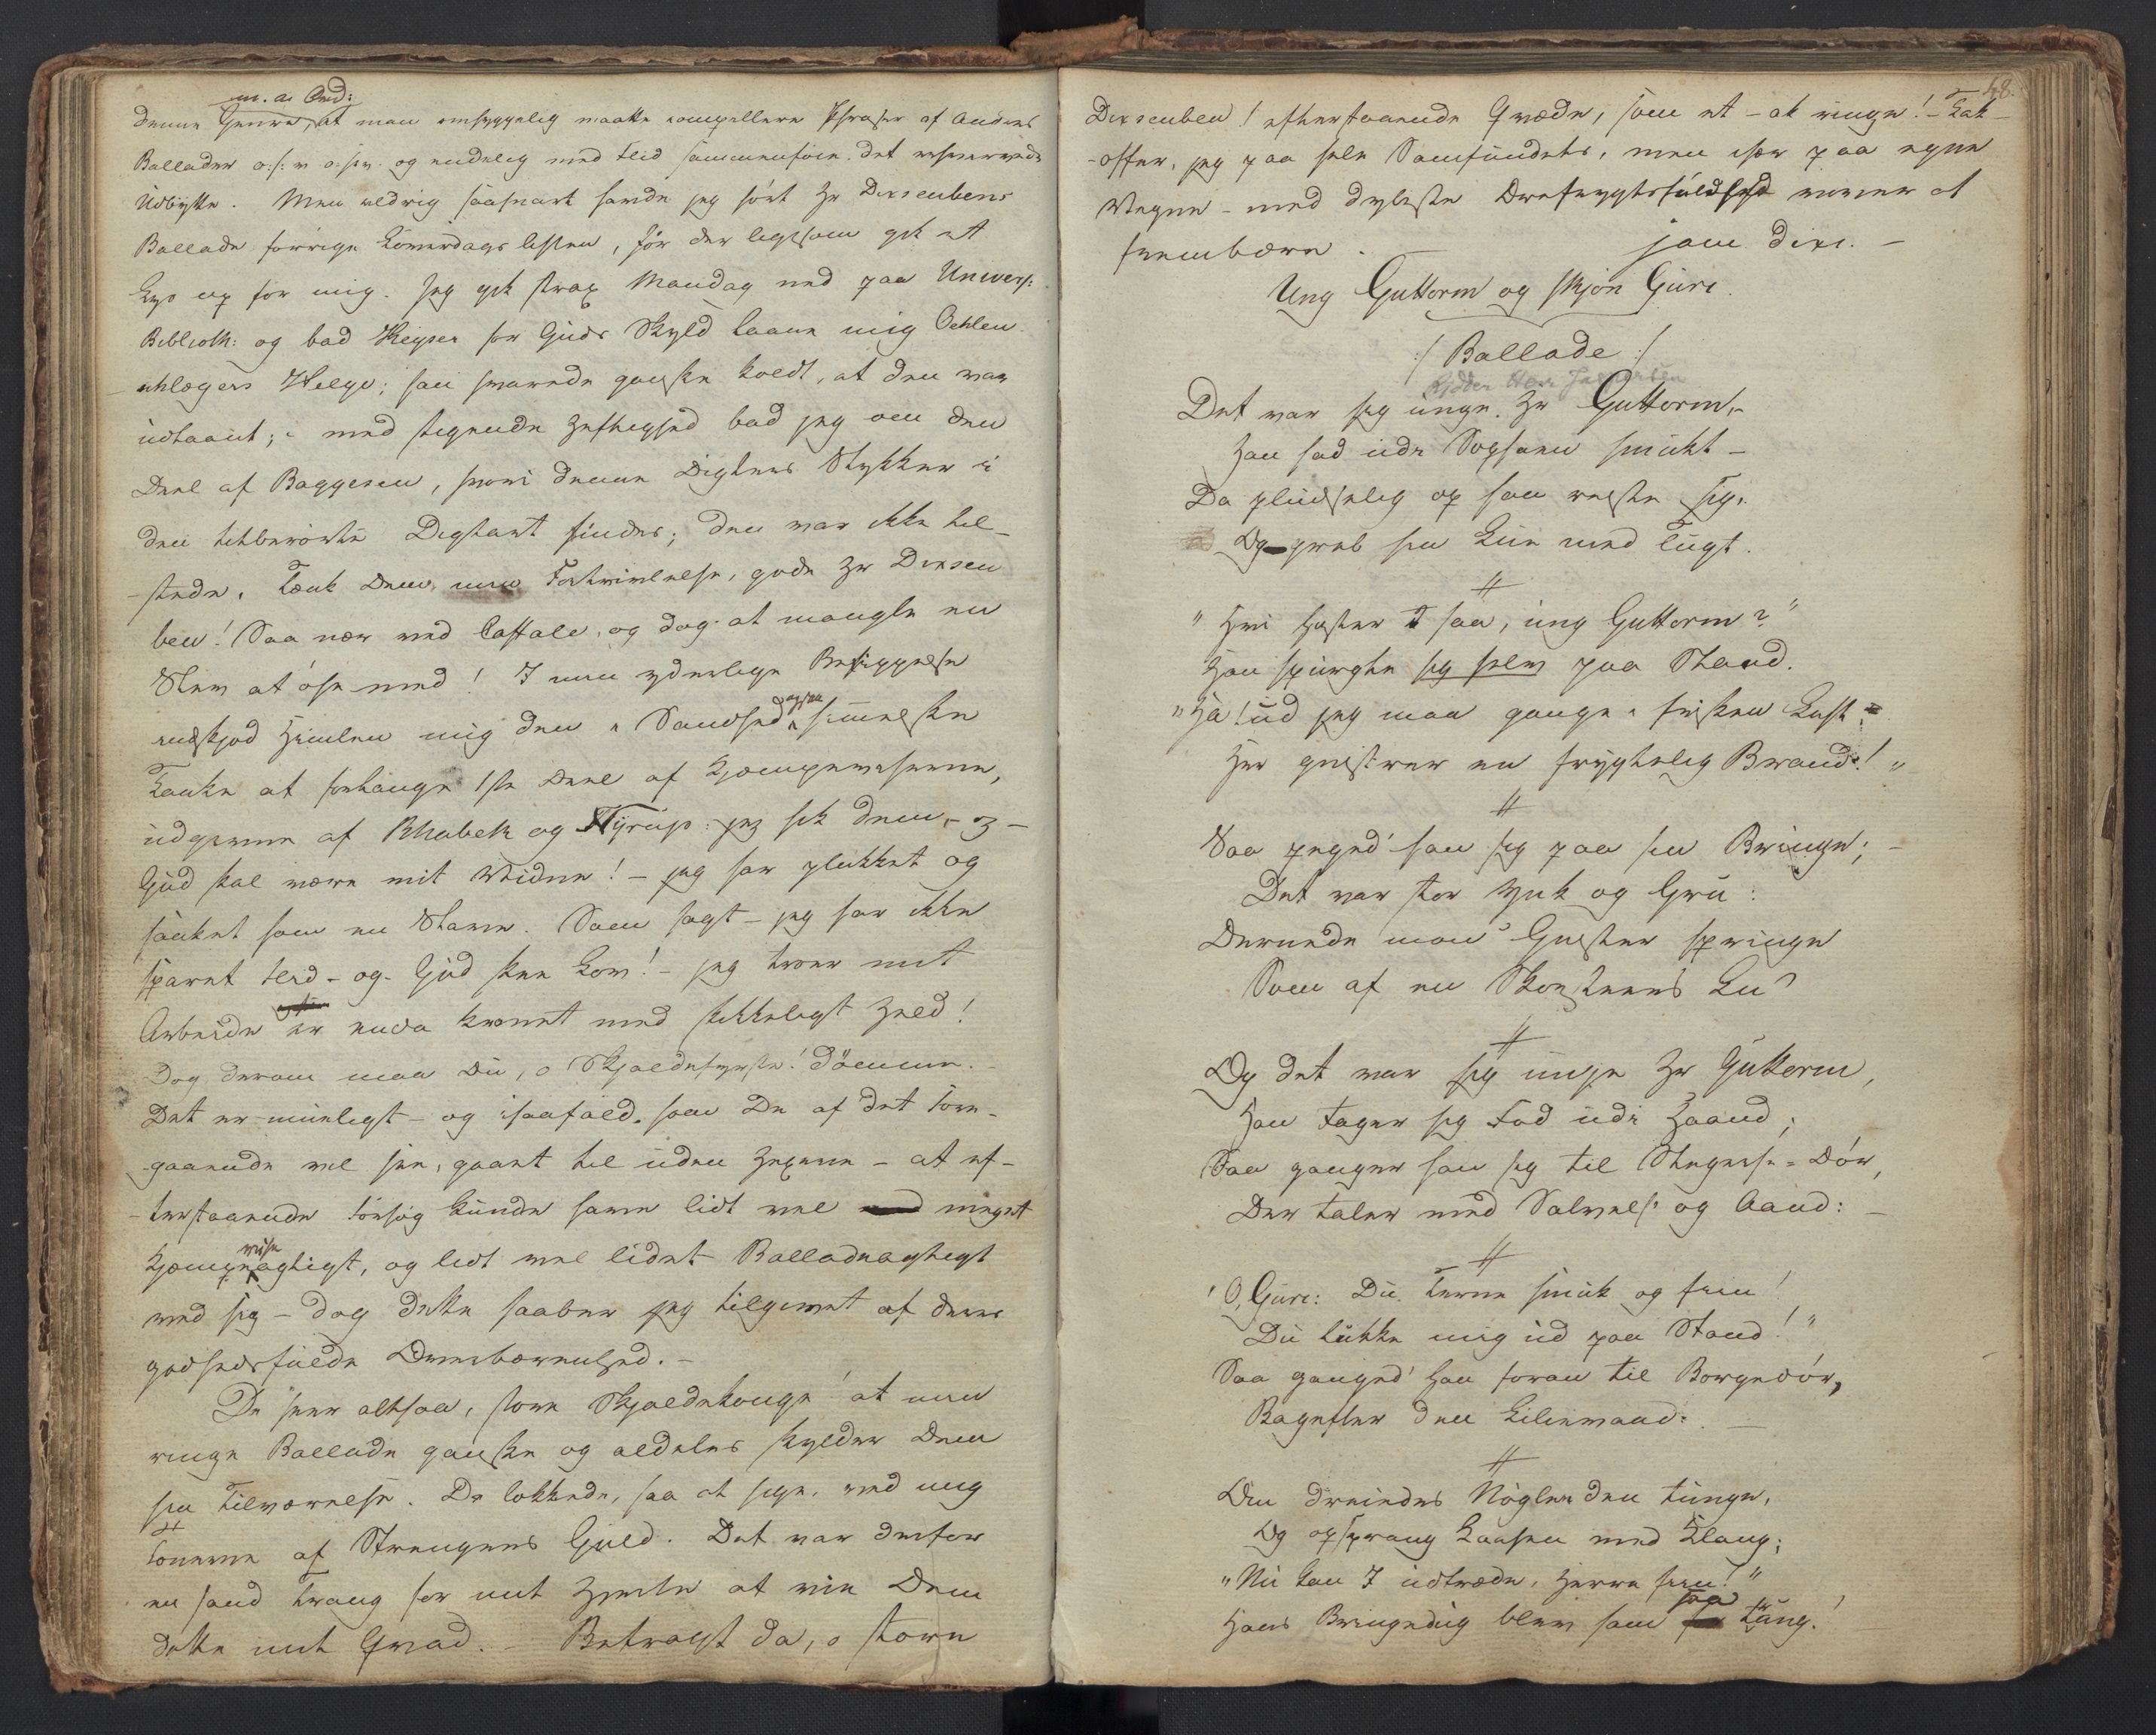 m. a. Ord:
denne Genre, at man omhyggelig maatte compellere Phraser af Andres
Ballader o: s: v: o: s: v. og endelig med Flid sammenføie det erhvervede
Udbytte. Men aldrig saasnart havde jeg hørt Hr Dixenbens
Ballade forrige Løverdags Aften, før der ligesom gik et
Lys op for mig. Jeg gik strax Mandag ned paa Univers:
Biblioth: og bad Keyser for Guds Skyld laane mig Oehlen-
schlægers Helge; han svarede ganske koldt, at den var
udlaant; - med stigende Heftighed bad jeg om den
Deel af Baggesen, hvori denne Digters Stykker i
den Digtart findes; den var ikke til-
stede. Tænk Dem min Fortvivlelse, gode Hr Dixen
ben! Saa nær ved Castale, og dog at mangle en
Slev at øse med! I min yderlige Befippelse
indskjød Himlen mig den i Sandhed ogsaa himmelske
Tanke at forlange 1ste Deel af Kjæmpeviserne,
udgivne af Rhabek og Nyrup: jeg fik dem, - og -
Gud skal være mit Vidne! - jeg har plukket og
sanket som en Stær. Som sagt - jeg har ikke
sparet Flid - og Gud skee Lov! - jeg troer mit
Arbeide er endda kronet med skikkeligt Held!
Dog derom maa Du, o Skjaldefyrste! dømme. -
Det er mueligt - og isaafald, som De af det fore-
gaaende vil see, gaaet til uden Hexerie - at ef-
terstaaende Forsøg kunde have lidt vel meget
Kjæmpeviseagtigt, og lidt vel lidet Balladeagtigt
ved sig - dog dette haaber jeg tilgivet af deres
godhedsfulde Overbærenhed. -
De seer altsaa, store Skjaldekonge! at min
ringe Ballade ganske og aldeles skylder Dem
sin Tilværelse. De lokkede, saa at sige, ved mig
Tonerne af Strengens Guld. Det var derfor
en sand Trang for mit Hjerte at vie Dem
dette mit Qvad. - Betragt da, o store
48.
Dixenben! efterstaaende Qvæde, som et - ak ringe! - Tak-
-offer, jeg paa hele Samfundets, men især paa egne
Vegne - med dybeste Ærefrygtsfuldhed vover at
frembære. jam dixi. -
Ung Guttorm og skjøn Guri.
:/ Ballade /:
Ridder Herr
Det var sig unge Hr Guttorm, -
Han sad udi Sophaen smukt -
Da pludselig op han reiste sig,
Og greb sin Lue med Lugt.
"Hvi haster I saa, ung Guttorm?"
Han spurgte sig selv paa Stand.
"Ha! ud jeg maa gange i frisken Luft
Her gnistrer en frygtelig Brand! "
Saa peged' han sig paa sin Bringe; -
Det var stor Ynk og Gru:
Dernede mon' Gnister springe
Som af en Skorsteens Lu'
Og det var sig unge Hr Guttorm,
Han tager sig Fad udi Haand;
Saa ganger han sig til Stegers-Dør,
Der taler med Salvels' og Aand: -
"O, Guri: Du Terne smuk og fiin!
Du lukke mig ud paa Stand!"
Saa ganged' han foran til Borgedør,
Bagefter den Lilievaand: -
Om dreiedes Nøglen den tunge,
Og opsprang Laasen med Klang;
"Nu kan I udtræde, Herre fiin!"
Hans Bringedug blev ham saa trang!